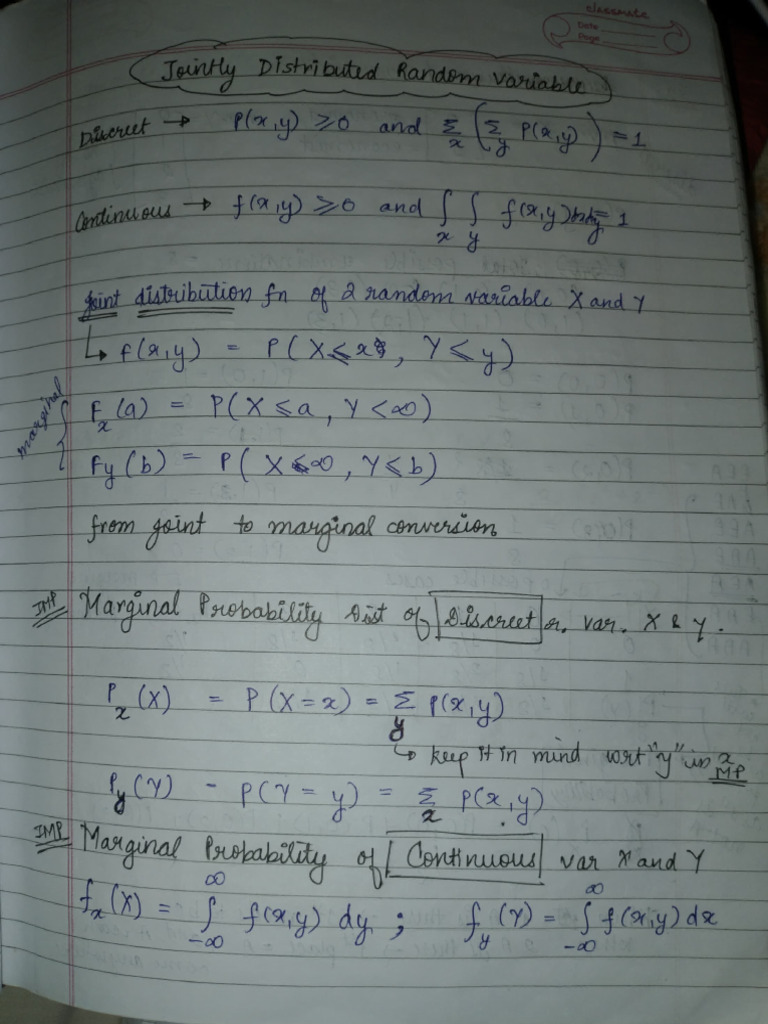 classmate
Date
Page
Jointly Distributed Random Variable
Discreet → P(x,y) ⩾ 0 and Σ_x (Σ_y P(x,y)) = 1
Continuous → f(x,y) ⩾ 0 and ∫_x ∫_y f(x,y) = 1
Joint distribution fn of 2 random variable X and Y
↳ f(x,y) = P(X ⩽ x, Y ⩽ y)
marginal
F_x(a) = P(X ⩽ a, Y < ∞)
F_y(b) = P(X ⩽ ∞, Y ⩽ b)
from joint to marginal conversion
IMP Marginal Probability Dist of Discreet r. var. X & Y.
P_x(X) = P(X = x) = Σ_y P(x,y)
↳ keep it in mind wrt "y" in x
IMP
P_y(Y) - P(Y = y) = Σ_x P(x,y)
IMP Marginal Probability of Continuous var X and Y
f_x(X) = ∫_{-∞}^{∞} f(x,y) dy ; f_y(Y) = ∫_{-∞}^{∞} f(x,y) dx